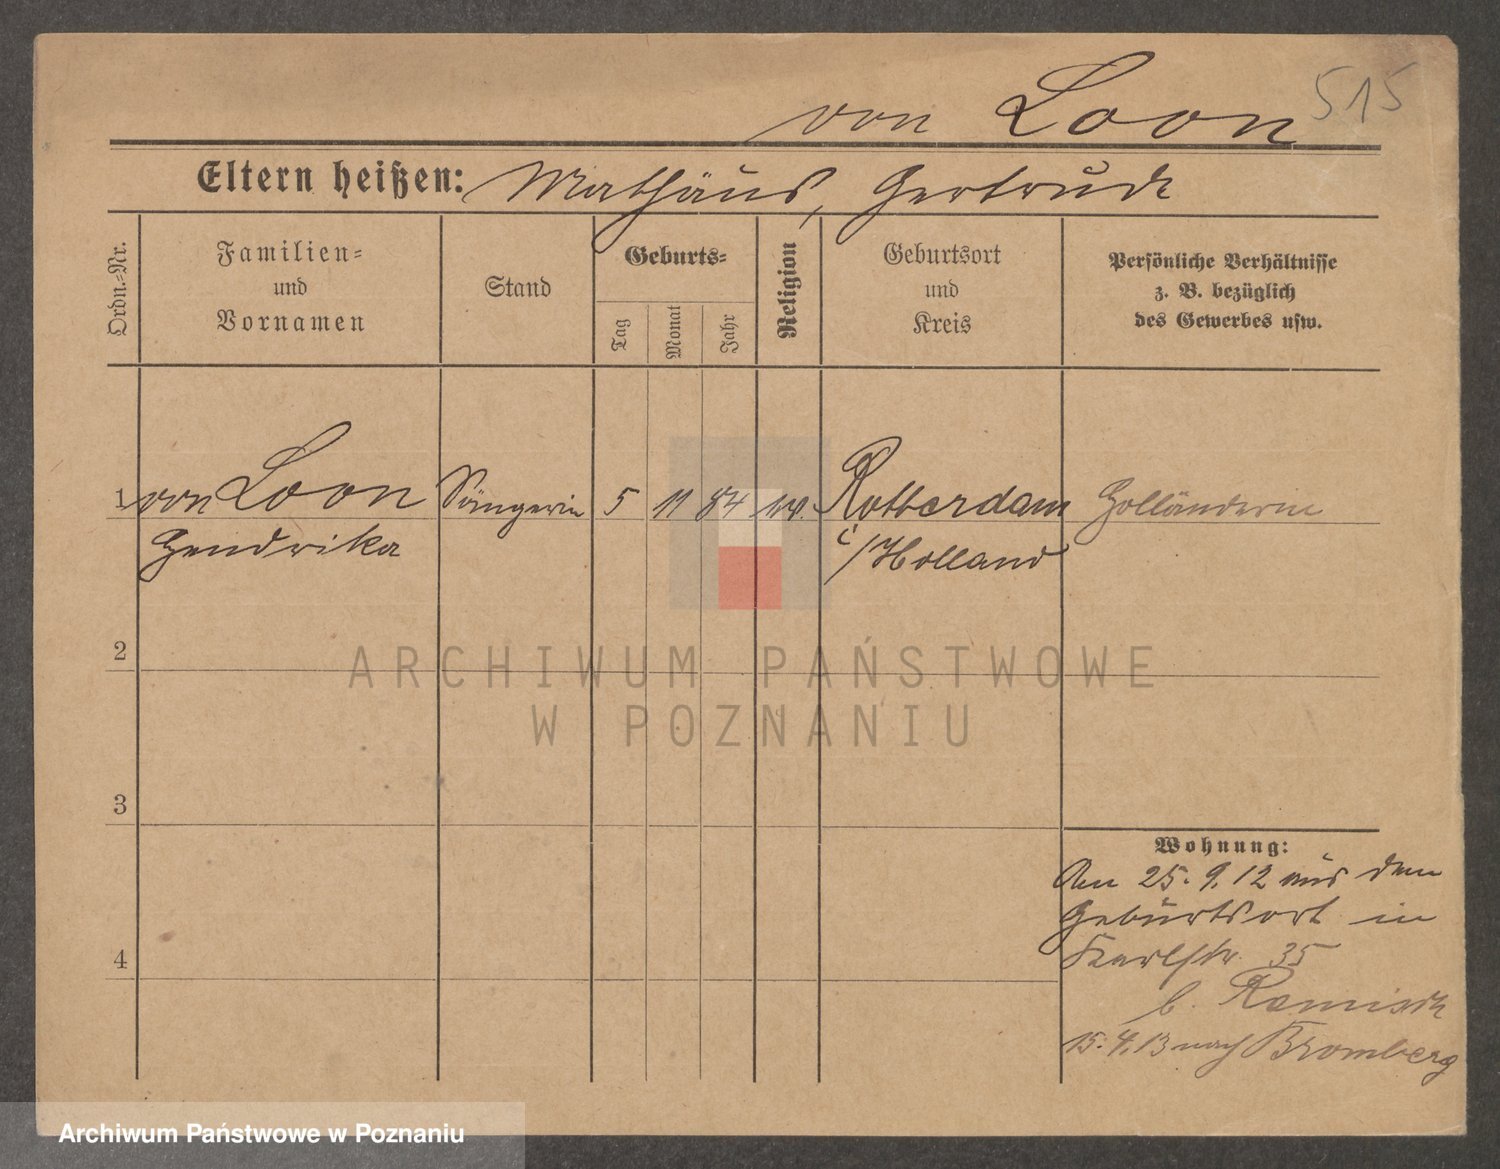 515
von Loon
Eltern heißen: Mathäus, Gertrude
Ordn.-Nr.
Familien-
und
Vornamen
Stand
Geburts-
Tag
Monat
Jahr
Religion
Geburtsort
und
Kreis
Persönliche Verhältnisse
z. B. bezüglich
des Gewerbes usw.
1 von Loon Sängerin 5 11 84 Rotterdam Holländerin
Hendrika i/Holland
2
3
4
Wohnung:
Am 25. 9. 12 aus dem
Geburtsort in
Karlstr. 35
b.
15. 4. 13 nach Bromberg
ARCHIWUM PAŃSTWOWE
W POZNANIU
Archiwum Państwowe w Poznaniu